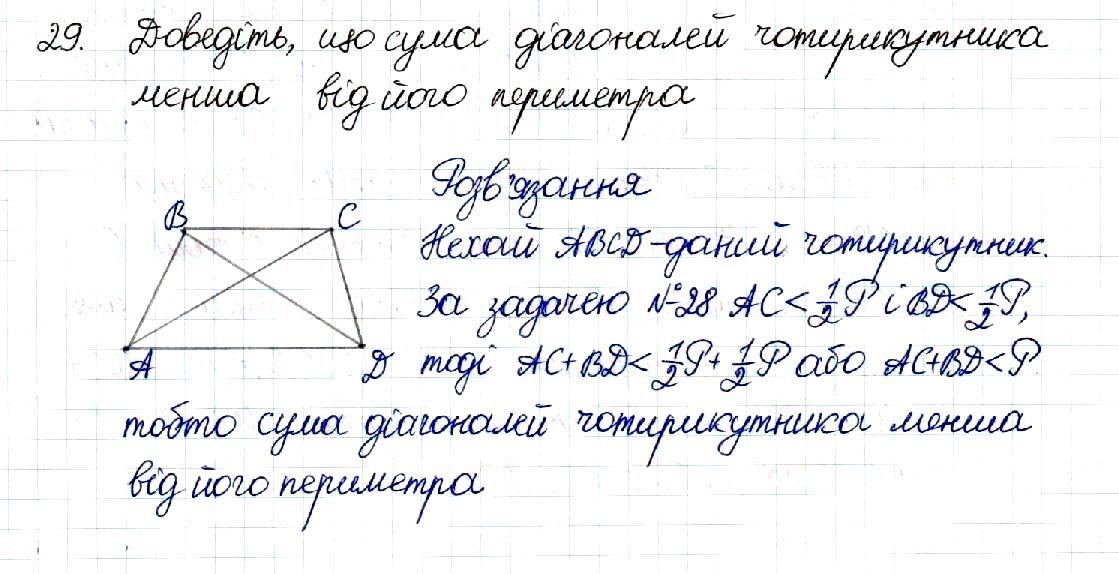 29. Доведіть, що сума діагоналей чотирикутника
менша від його периметра
Розв'язання
B C
Нехай ABCD - даний чотирикутник.
За задачею №28 AC < 1/2 P і BD < 1/2 P,
A D тоді AC + BD < 1/2 P + 1/2 P або AC + BD < P
тобто сума діагоналей чотирикутника менша
від його периметра